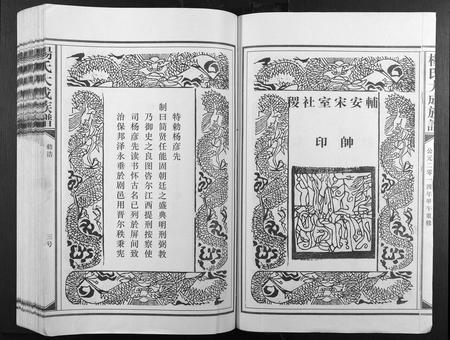 杨氏大成族谱
公元二零一四年甲午重修
輔安宋室社稷
帥印
特勅杨彦先
制曰简贤任能固朝廷之盛典明刑弼教
乃御史之良图咨尔江西提刑按察使
司杨彦先读书怀古名已列於屏间致
治保邦泽永垂於剧邑用晋尔秩秉宪
杨氏大成族谱
勅浩
三号